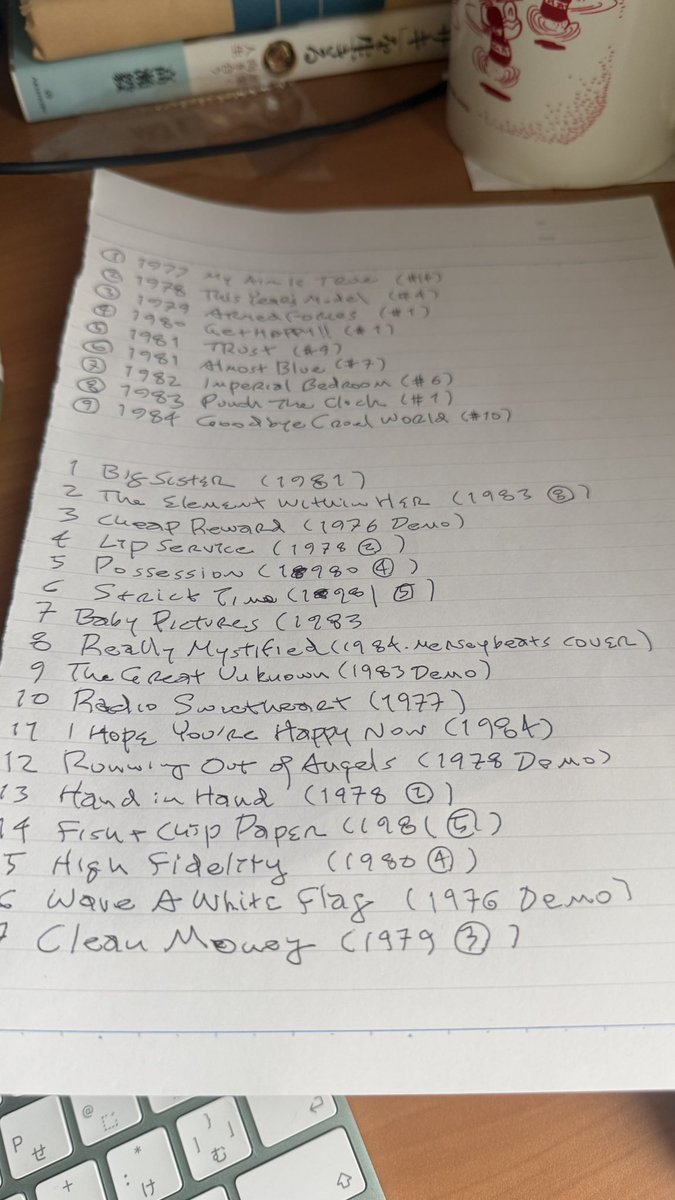 サキ」を生きる
高瀬毅
① 1977 My Aim Is True (#14)
② 1978 This Year's Model (#4)
③ 1979 Armed Forces (#1)
④ 1980 Get Happy!! (#1)
⑤ 1981 Trust (#9)
⑥ 1981 Almost Blue (#7)
⑦ 1982 Imperial Bedroom (#6)
⑧ 1983 Punch The Clock (#1)
⑨ 1984 Goodbye Cruel World (#10)
1 Big Sister (1981)
2 The Element Within Her (1983 ⑧)
3 Cheap Reward (1976 Demo)
4 Lip Service (1978 ②)
5 Possession (1980 ④)
6 Strict Time (1981 ⑤)
7 Baby Pictures (1983
8 Really Mystified (1984. Merseybeats cover)
9 The Great Unknown (1983 Demo)
10 Radio Sweetheart (1977)
11 I Hope You're Happy Now (1984)
12 Running Out of Angels (1978 Demo)
13 Hand in Hand (1978 ②)
14 Fish + Chip Paper (1981 ⑤)
5 High Fidelity (1980 ④)
6 Wave A White Flag (1976 Demo)
7 Clean Money (1979 ③)
P せ
@
* : け
} ] む
+